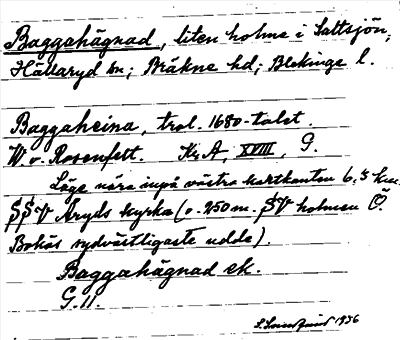 Baggahägnad, liten holme i Saltsjön;
Hällaryd sn; Bräkne hd; Blekinge l.
Baggaheina, trol. 1680-talet.
W v. Rosenfelt. Kr. A, XVIII, G.
Läge nära inpå västra kartkanten 6,5 km.
SSV Åryds kyrka (o. 250 m. SV holmen Ö.
Bokös sydvästligaste udde).
Baggahägnad ek.
G.11.
1936